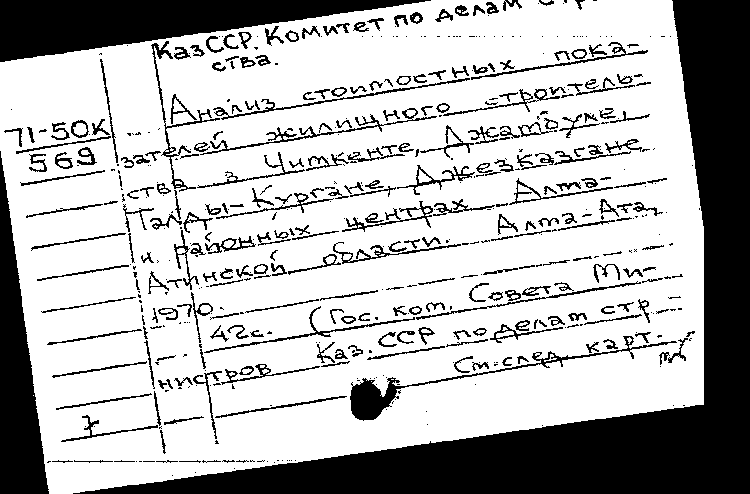 КазССР. Комитет по делам стр
ства.
71-50к
569
Анализ стоимостных пока-
зателей жилищного строитель-
ства в Чимкенте, Джамбуле,
Талды-Кургане, Джезказгане
и районных центрах Алма-
Атинской области. Алма-Ата,
1970.
42с. (Гос. ком. Совета Ми-
нистров Каз. ССР по делам стр-
См. след. карт.
7